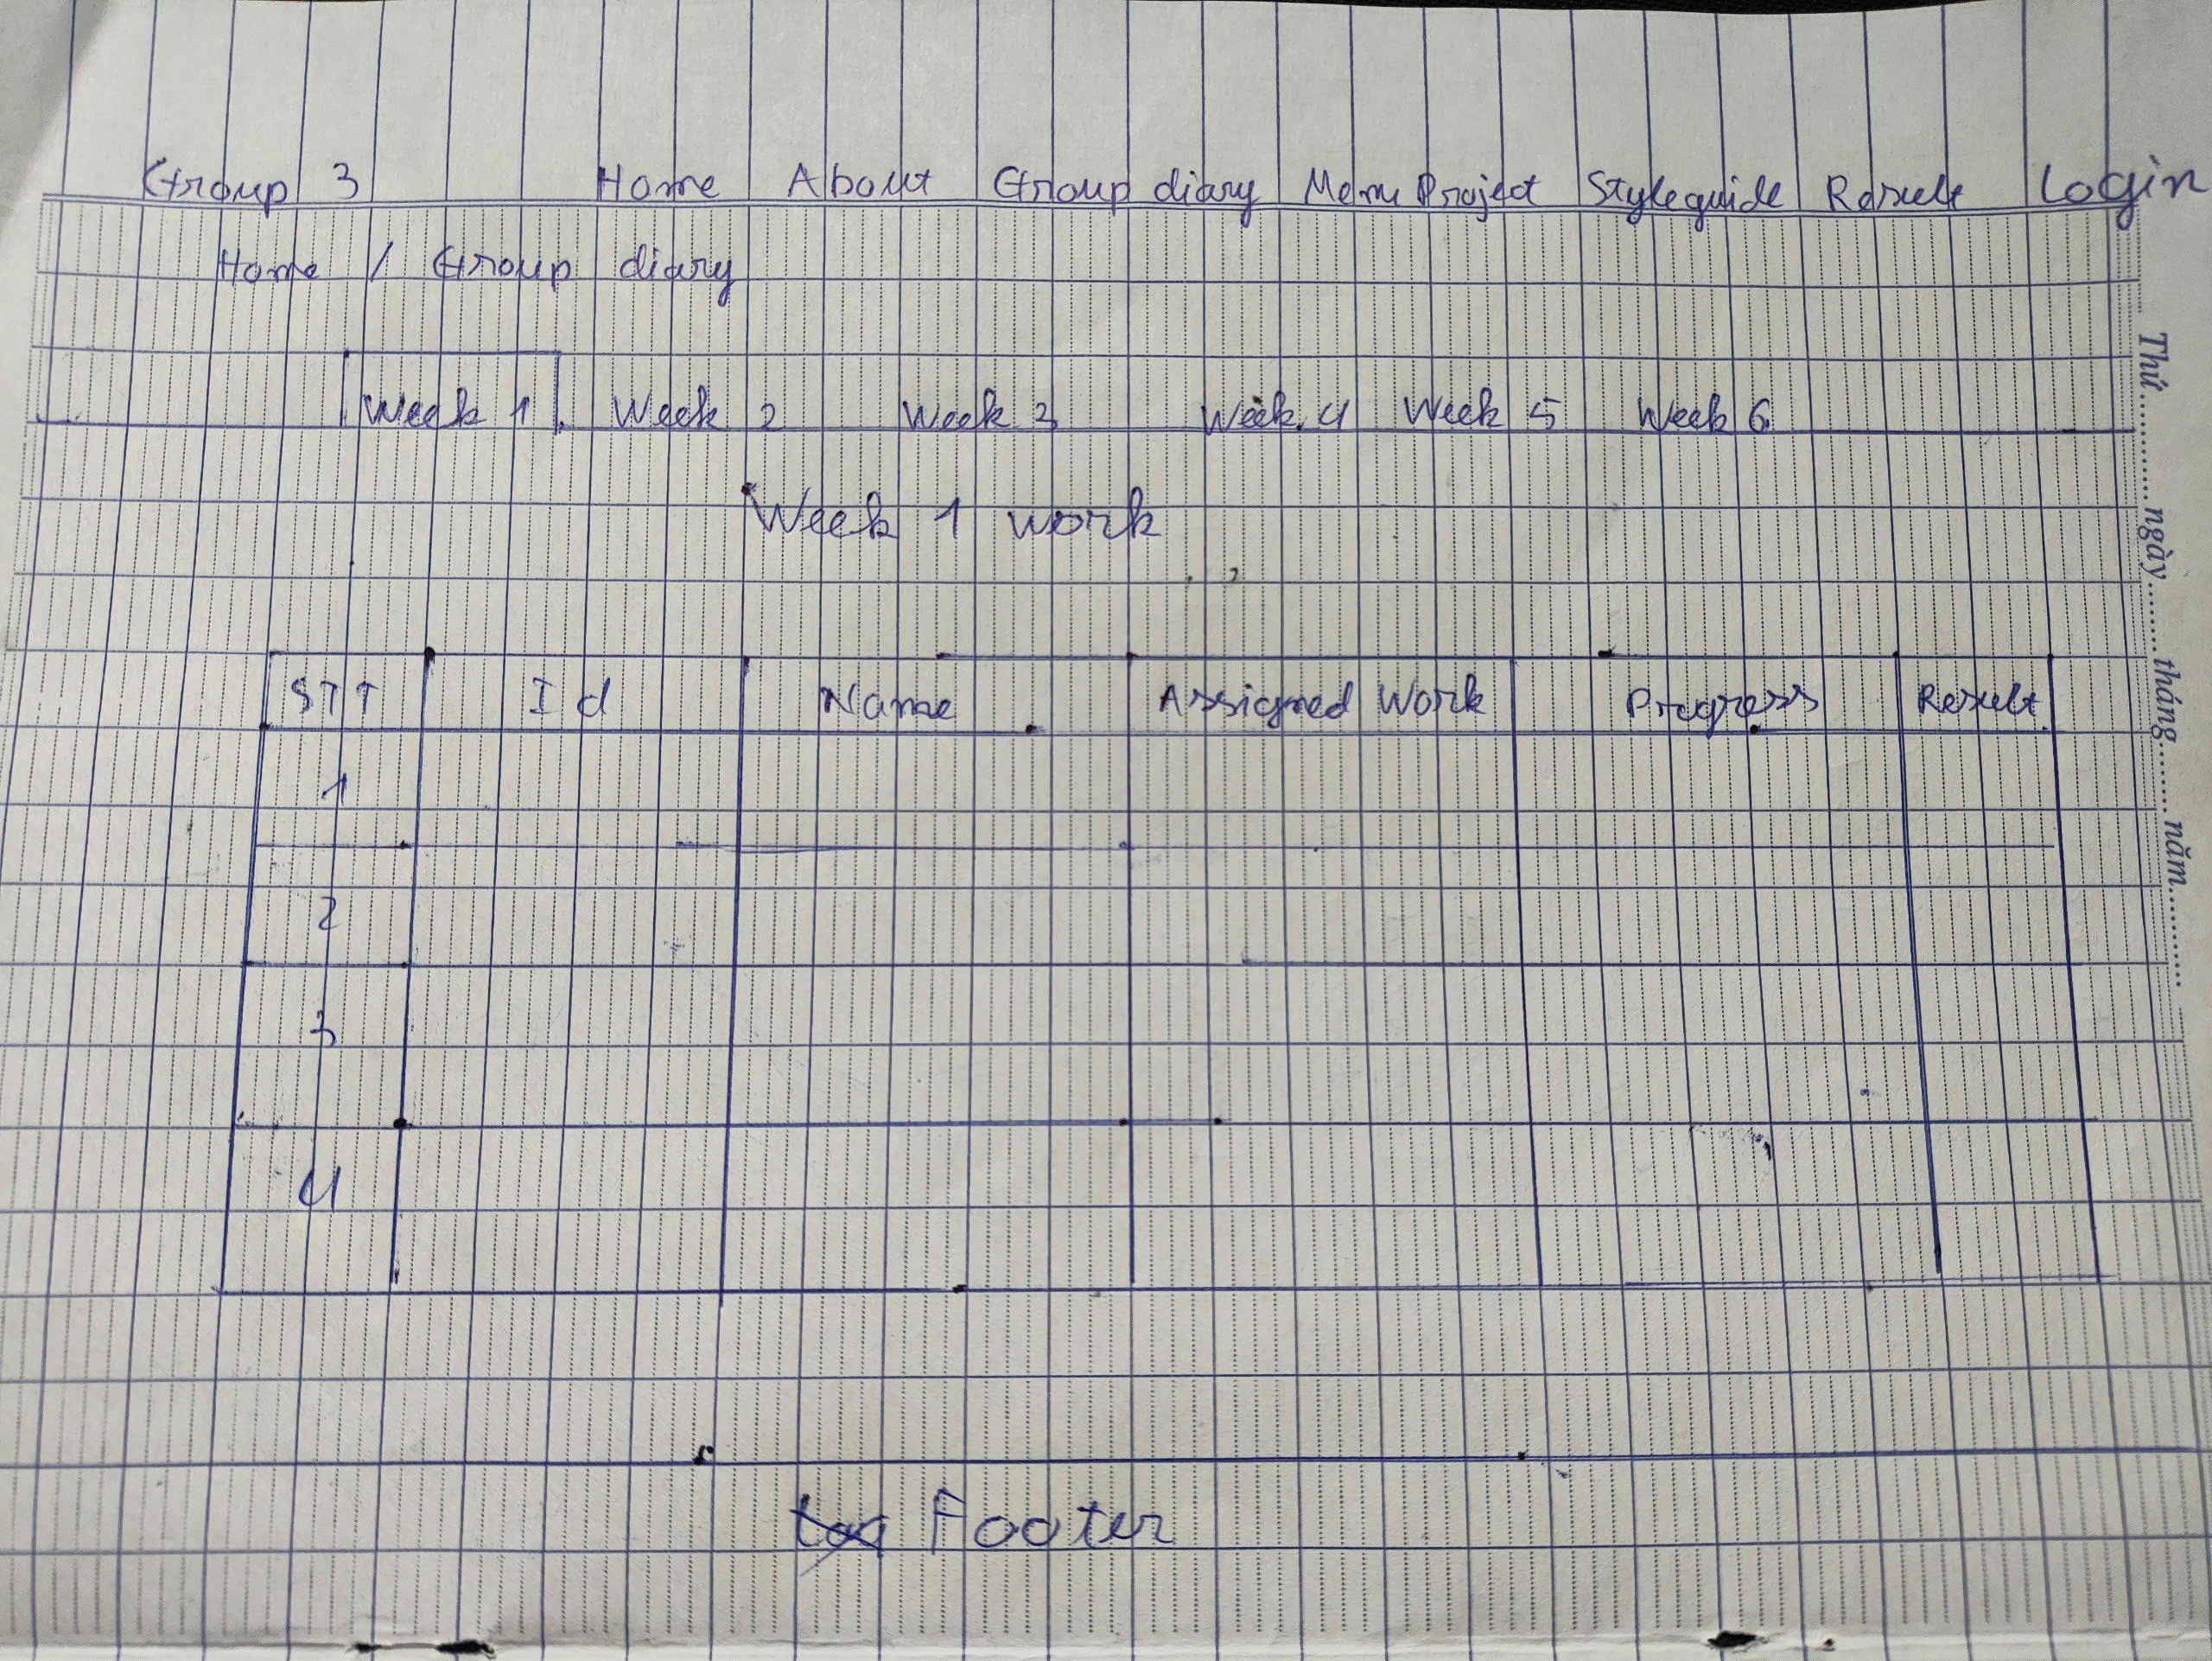 Group 3 Home About Group diary Menu Project Styleguide Result Login
Home / Group diary
Week 1 Week 2 Week 3 Week 4 Week 5 Week 6
Week 1 work
STT Id Name Assigned Work Progress Result
1
2
3
4
Footer
Thứ............ngày.......tháng........năm............